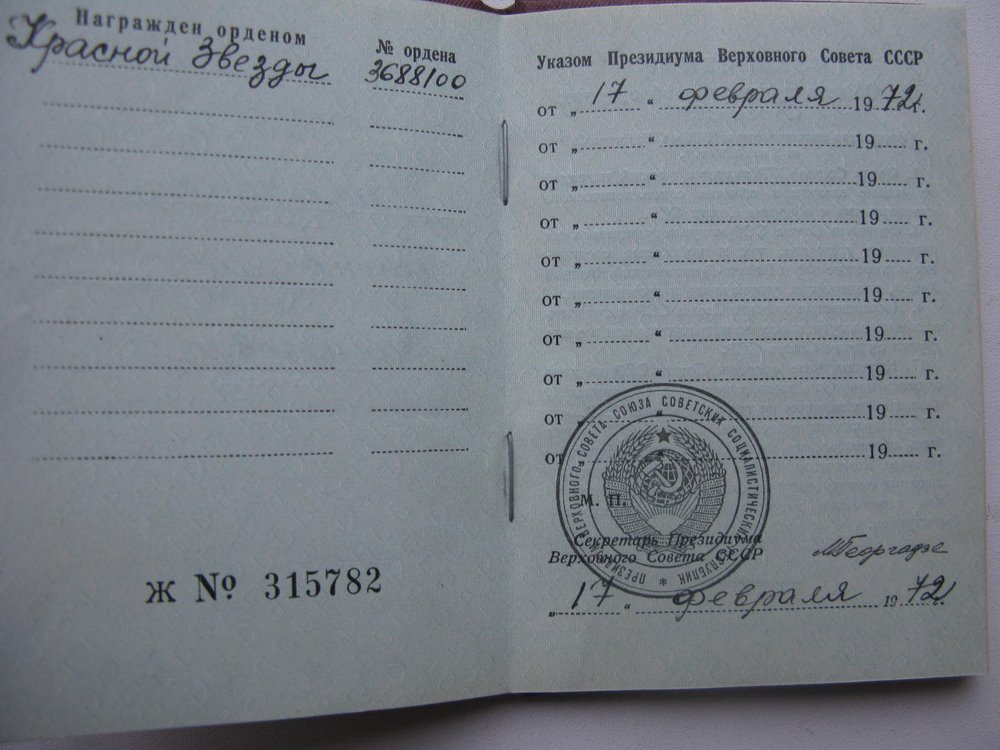 Награжден орденом
№ ордена
Красной Звезды
3688100
Ж № 315782
Указом Президиума Верховного Совета СССР
от „ 17 “ февраля 1972 г.
от „ “ 19 г.
от „ “ 19 г.
от „ “ 19 г.
от „ “ 19 г.
от „ “ 19 г.
от „ “ 19 г.
от „ “ 19 г.
от „ “ 19 г.
от „ “ 19 г.
ПРЕЗИДИУМ ВЕРХОВНОГО СОВЕТА СОЮЗА СОВЕТСКИХ СОЦИАЛИСТИЧЕСКИХ РЕСПУБЛИК
М. П.
Секретарь Президиума
Верховного Совета СССР
МГеоргадзе
„ 17 “ февраля 1972 г.